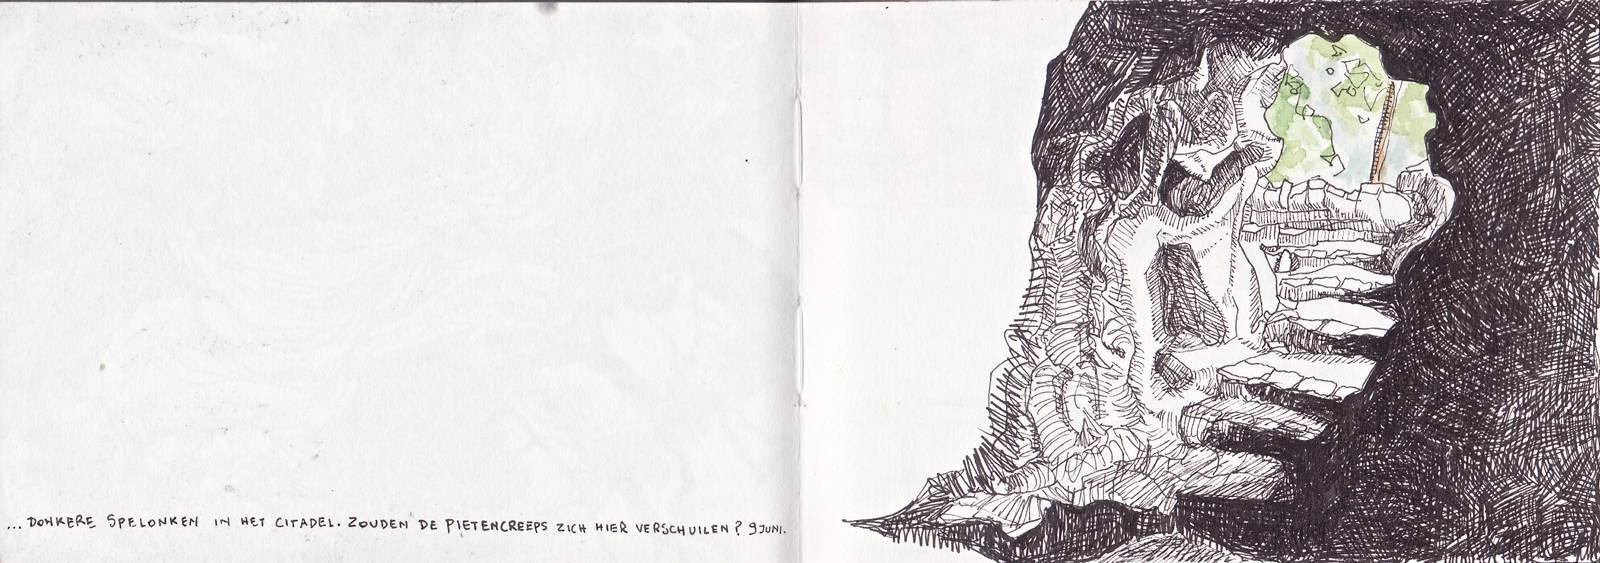 ... DONKERE SPELONKEN IN HET CITADEL. ZOUDEN DE PIETENCREEPS ZICH HIER VERSCHUILEN? 9 JUNI.